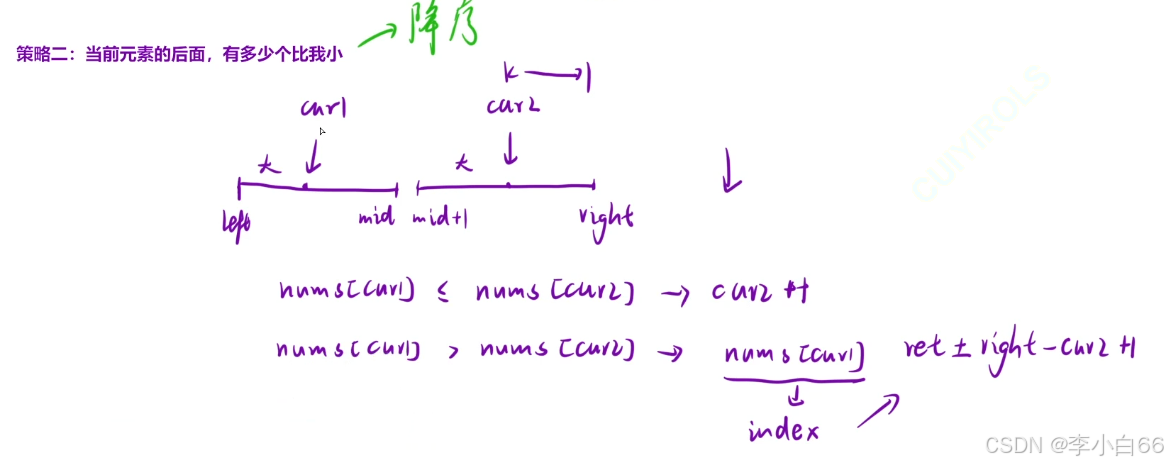 策略二：当前元素的后面，有多少个比我小
降序
k
cur1
cur2
大
大
left
mid
mid+1
right
nums[cur1] ≤ nums[cur2] → cur2++
nums[cur1] > nums[cur2] → nums[cur1] ret += right-cur2+1
index
CUIYIROLS
CSDN @李小白66